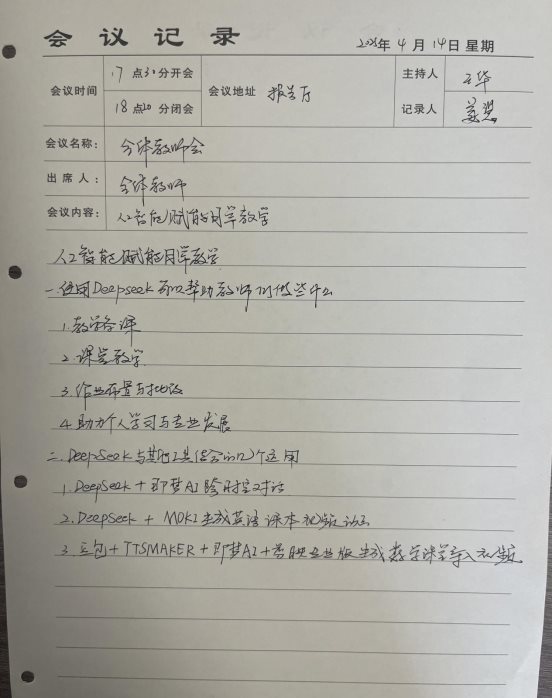 会议记录
2025年4月14日 星期
会议时间 17点30分开会 会议地址 报告厅 主持人 王华
18点20分闭会 记录人
会议名称: 全体教师会
出席人: 全体教师
会议内容: 人工智能赋能日常教学
人工智能赋能日常教学
一.使用Deepseek可以帮助教师们做些什么
1.教学备课
2.课堂教学
3.作业布置与批改
4.助力个人学习与专业发展
二.DeepSeek与其他工具结合的几个运用
1.DeepSeek+即梦AI跨时空对话
2.DeepSeek + MOKI生成英语课本视频
3.豆包+TTSMAKER+即梦AI+剪映专业版生成数学课堂导入视频